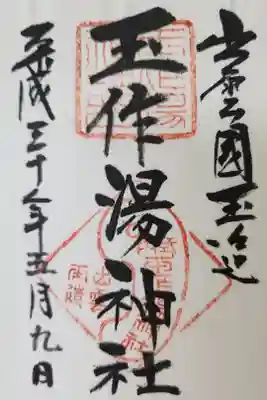 出雲之國玉造
玉作湯神社
平成三十年五月九日